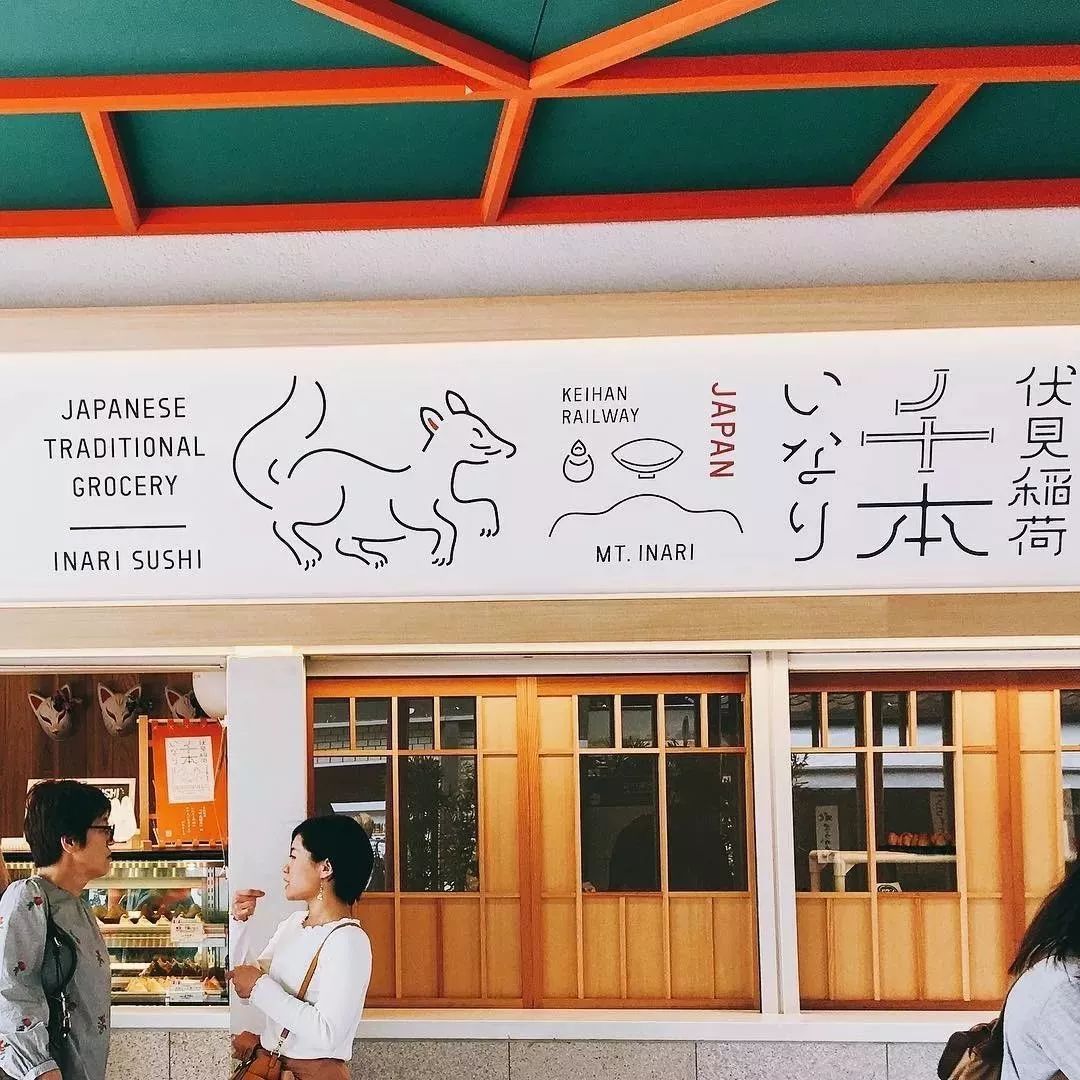 JAPANESE
TRADITIONAL
GROCERY
INARI SUSHI
KEIHAN
RAILWAY
MT. INARI
JAPAN
いなり
千本
伏見稲荷